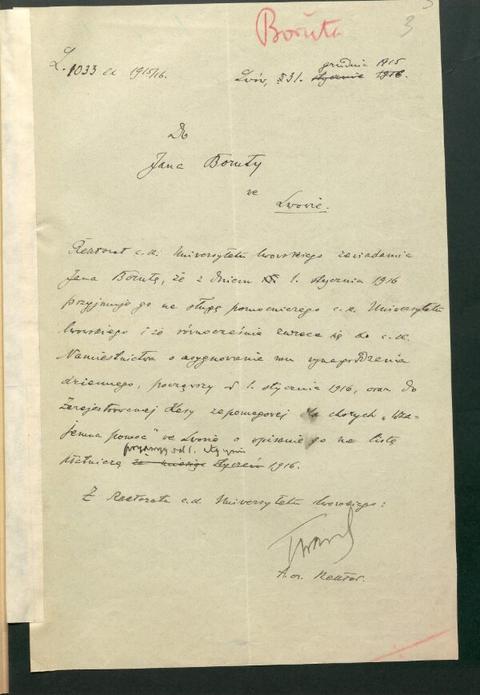 Boruta
3
L. 1033 ex 1915/16.
grudnia 1915
Lwów, 31. stycznia 1916.
Do
Jana Boruty
we
Lwowie.
Rektorat c.k. Uniwersytetu lwowskiego zawiadamia
Jana Borutę, że z dniem 1. stycznia 1916
przyjmuje go na sługę pomocniczego c.k. Uniwersytetu
lwowskiego i że równocześnie zwraca się do c.k.
Namiestnictwa o asygnowanie mu wynagrodzenia
dziennego, począwszy od 1. stycznia 1916, oraz do
Zarejestrowanej Kasy zapomogowej dla chorych „Wza-
jemna pomoc" we Lwowie o wpisanie go na listę
począwszy od 1. stycznia
za miesiąc styczeń 1916.
Z Rektoratu c.k. Uniwersytetu lwowskiego:
Rektor.